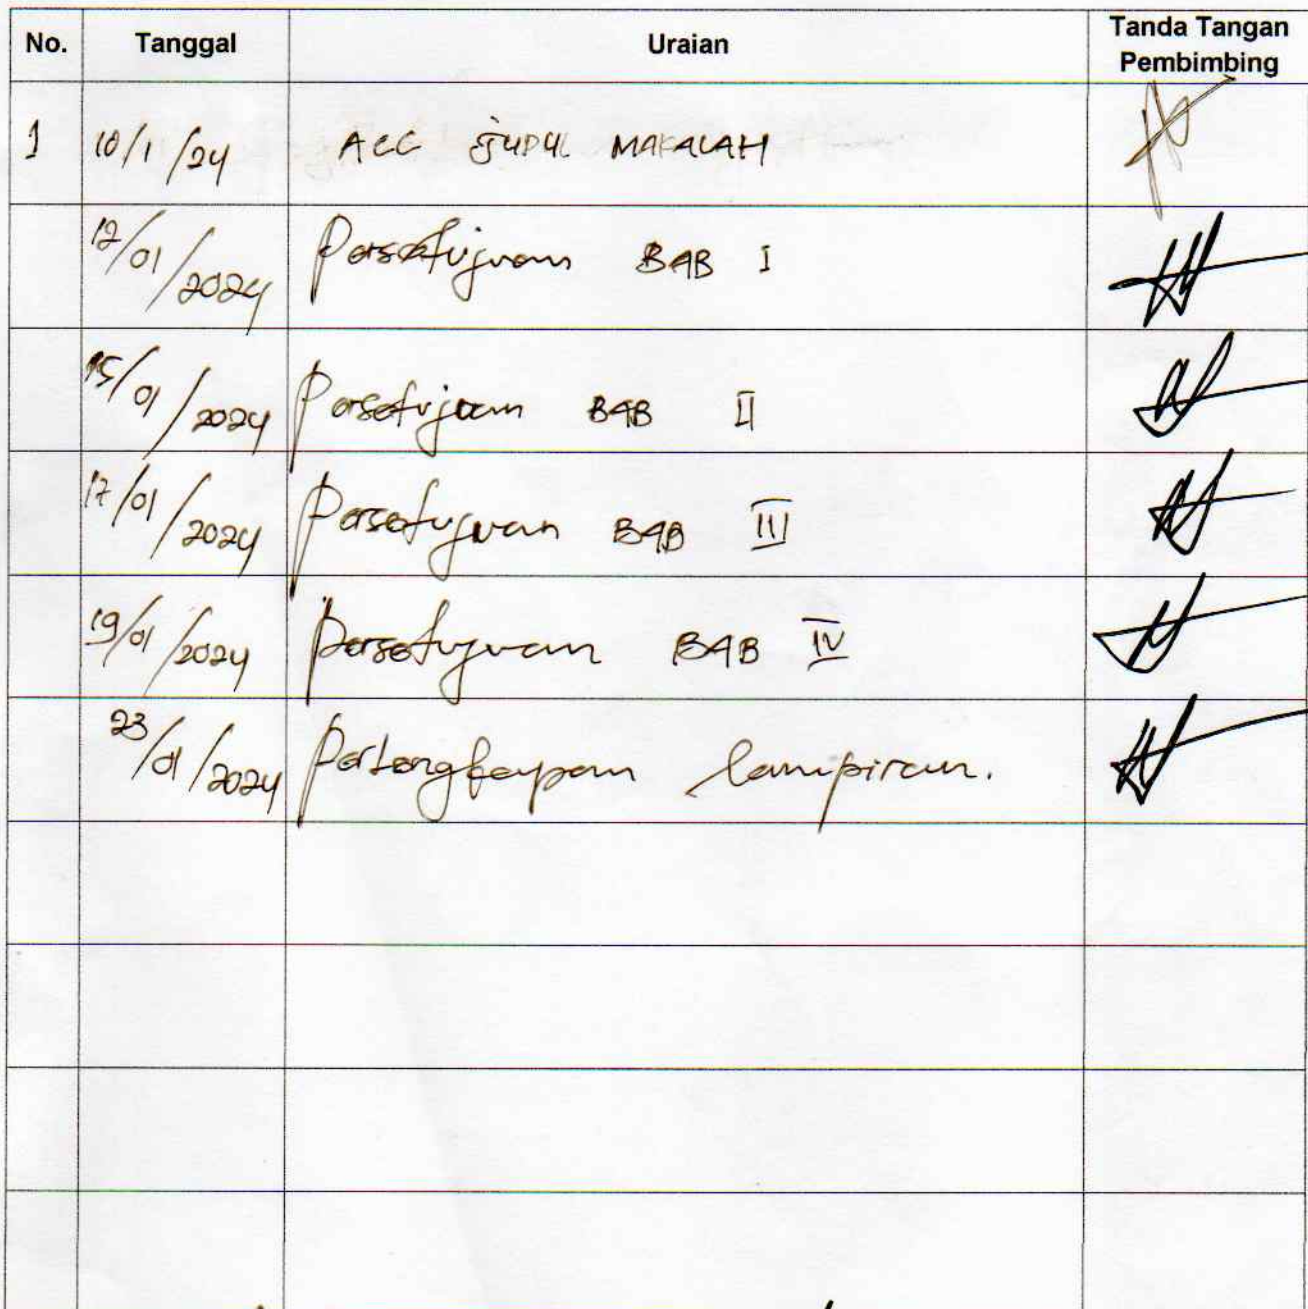 No. Tanggal Uraian Tanda Tangan
Pembimbing
1 10/1/24 ACC JUDUL MAKALAH
12/01/2024 Persetujuan BAB I
15/01/2024 Persetujuan BAB II
17/01/2024 Persetujuan BAB III
19/01/2024 Persetujuan BAB IV
23/01/2024 Perlengkapan lampiran.